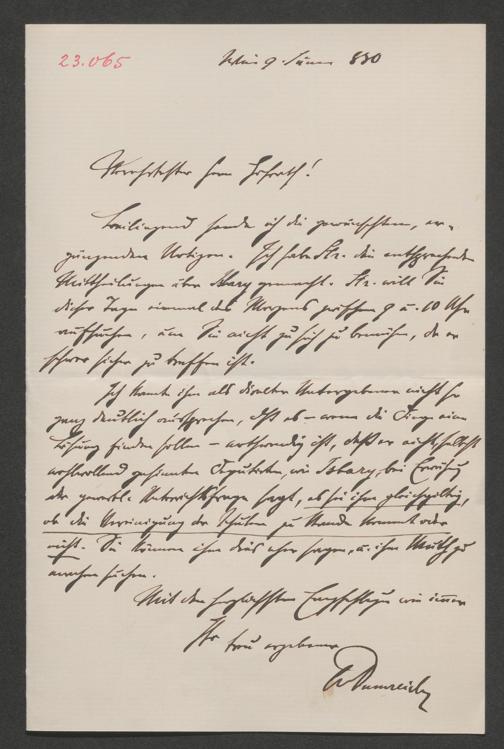 23.065
Wien 9. Jänner 880
Verehrtester Herr Hofrath!
Beiliegend sende ich die gewünschten, er-
gänzenden Notizen. Ich habe Str. die entsprechenden
Mittheilungen über Mary gemacht. Str. will Sie
dieser Tage einmal des Morgens zwischen 9 u. 10 Uhr
aufsuchen, um Sie nicht zu sich zu bemühen, da er
schwer sicher zu treffen ist.
Ich kannte ihm als direkter Untergebener nicht so
ganz deutlich aussprechen, daß es – wenn die Dinge eine
Lösung finden sollen – nothwendig ist, daß er nicht selbst
wohlwollend gesinnten Deputirten, wie bei
der gewerbl. Unterrichtsfrage sagt, es sei ihm gleichgiltig,
ob die Vereinigung der Schulen zu Stande kommt oder
nicht. Sie können ihm dies eher sagen, u. ihm Muth zu
machen suchen.
Mit den herzlichsten Empfehlungen wie immer
Ihr
treu ergebener
Dumreicher